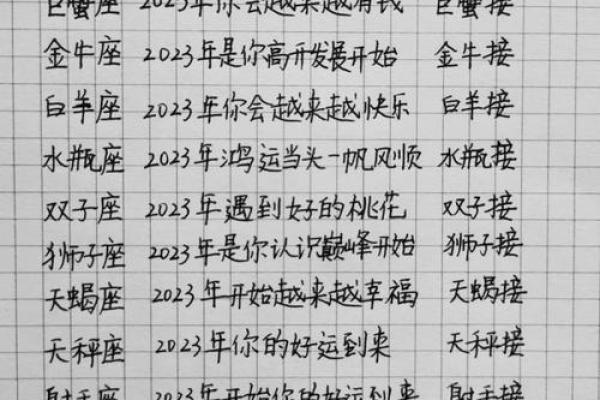 巨蟹座 2023年你会越来越有钱 巨蟹接
金牛座 2023年是你高开发展开始 金牛接
白羊座 2023年你会越来越快乐 白羊接
水瓶座 2023年鸿运当头一帆风顺 水瓶接
双子座 2023年遇到好的桃花 双子接
狮子座 2023年是你认识巅峰开始 狮子接
天蝎座 2023年开始越来越幸福 天蝎接
天秤座 2023年你的好运到来 天秤接
射手座 2023年开始你的好运到来 射手接